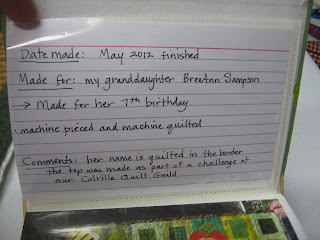 Date made: May 2012 finished
Made for: my granddaughter BreeAnn Sampson
→ Made for her 7th birthday
· machine pieced and machine quilted
Comments: her name is quilted in the border
the top was made as part of a challenge at
our Colville Quilt Guild